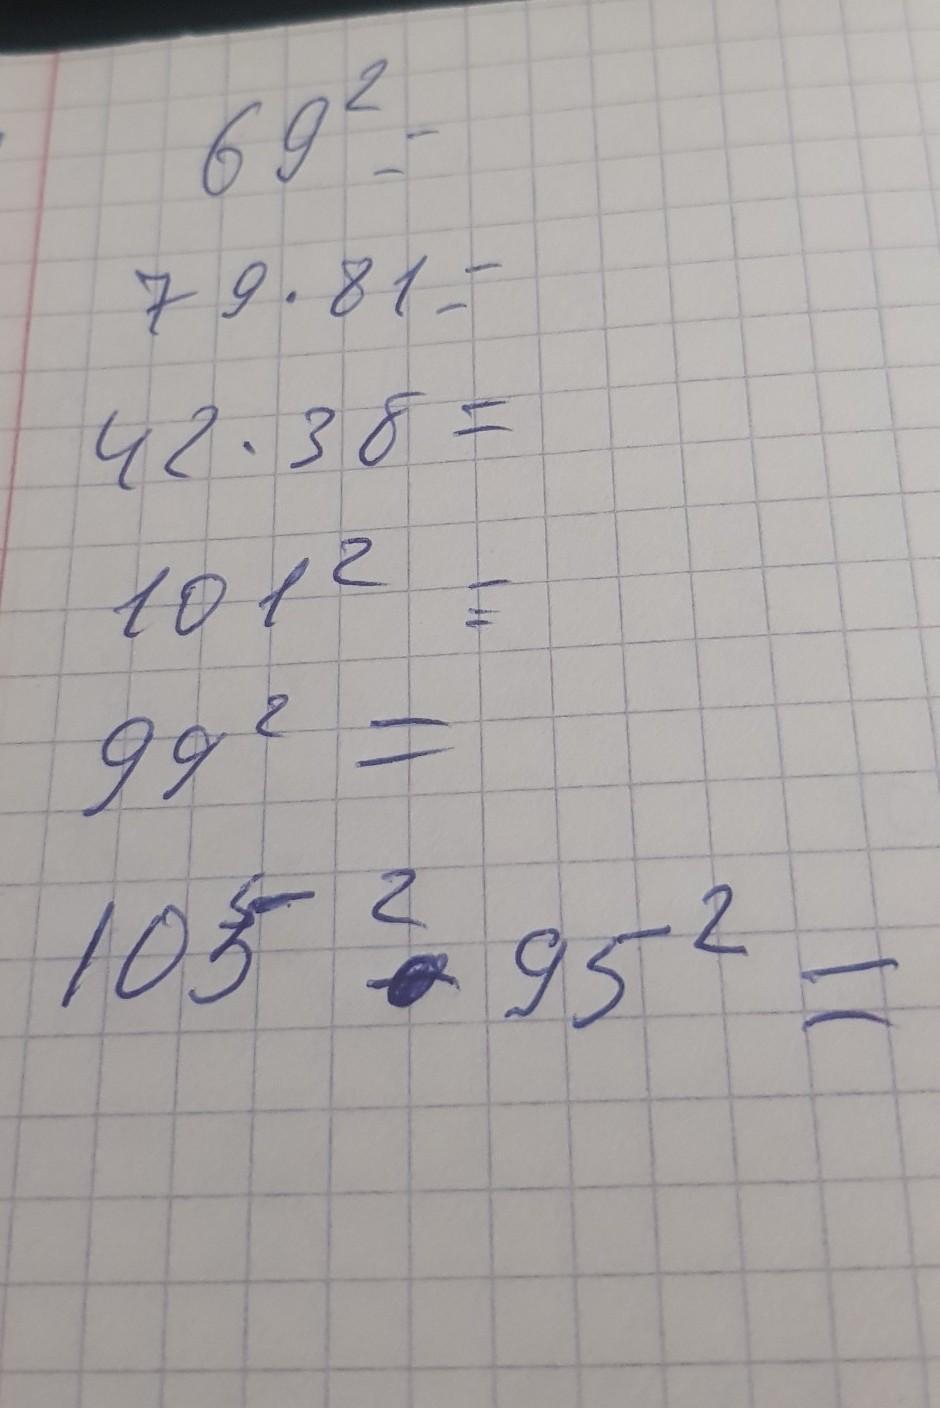 69² =
79 · 81 =
42 · 38 =
101² =
99² =
105² - 95² =